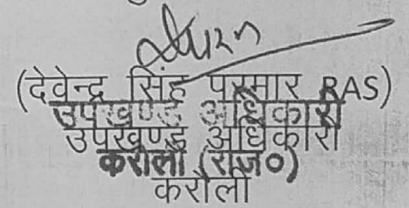 (देवेन्द्र सिंह परमार RAS)
उपखण्ड अधिकारी
उपखण्ड अधिकारी
करौली (राज०)
करौली